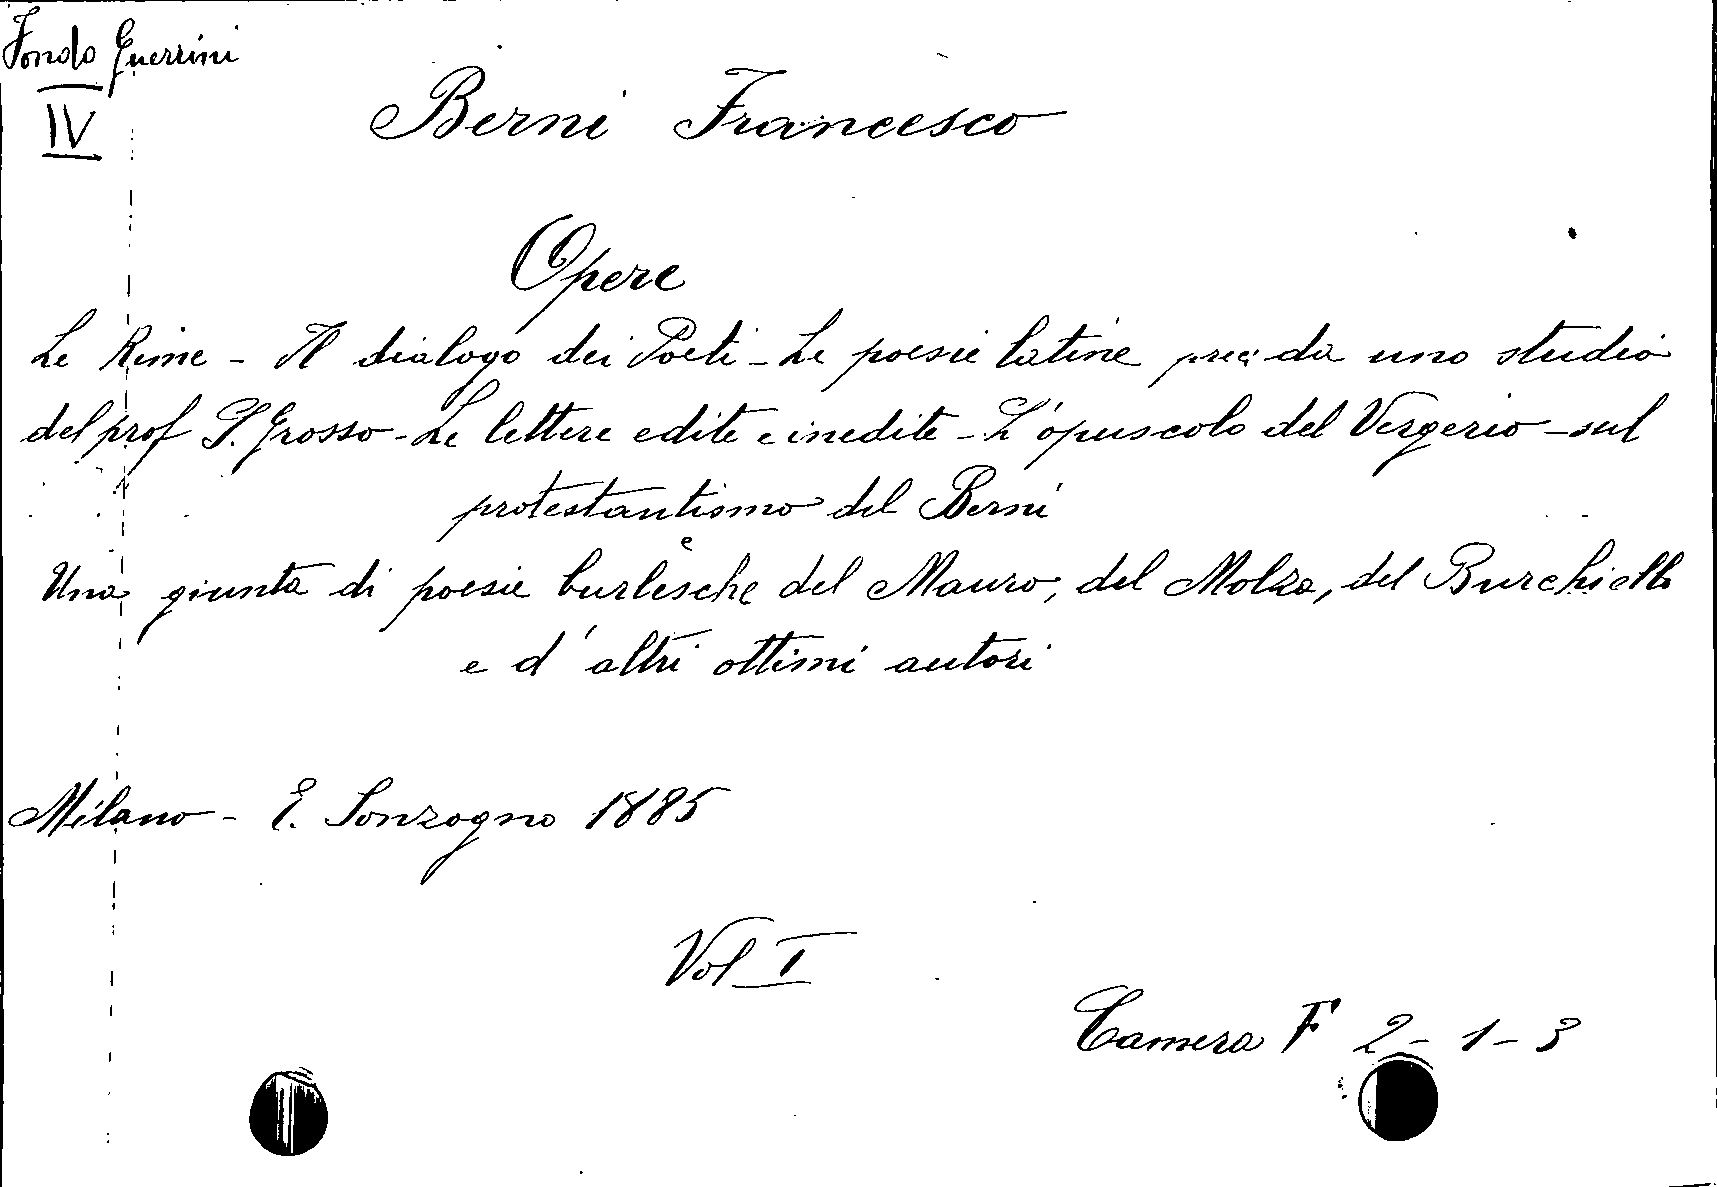 Fondo Guerrini
IV
Berni Francesco
Opere
Le Rime - Il dialogo dei Poeti - Le poesie latine prec: da uno studio
del prof P. Grosso - Le lettere edite e inedite - L'opuscolo del Vergerio - sul
protestantismo del Berni
e
Una giunta di poesie burlesche del Mauro, del Molza, del Burchiello
e d'altri ottimi autori
Milano - E. Sonzogno 1885
Vol I
Camera F 2 - 1 - 3